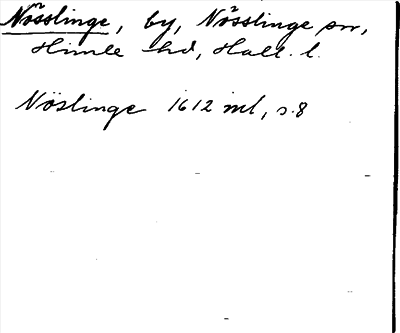 Nösslinge, by, Nösslinge sn,
Himle hd, Hall. l.
Nöslinge 1612 ml, s. 8